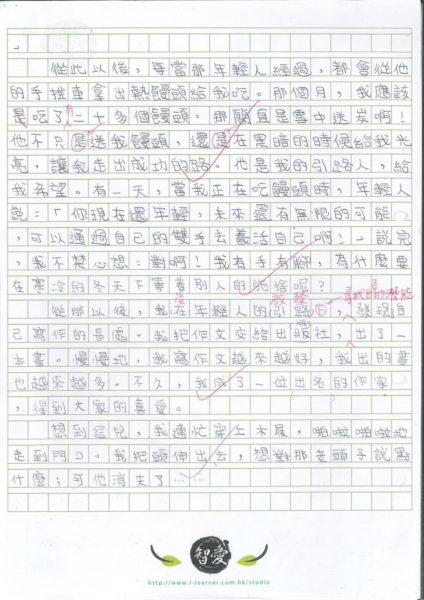 」
從此以後，每當那年輕人經過，都會從他
的手推車拿出熱饅頭給我吃。那個月，我應該
是吃了二十多個饅頭。那簡直是雪中送炭啊！
他不只是送我饅頭，還是在黑暗的時候給我光
亮，讓我走出成功的路。他是我的引路人，給
我希望。有一天，當我正在吃饅頭時，年輕人
說：「你現在還年輕，未來還有無限的可能
，可以通過自己的雙手去養活自己啊！」說完
，我不禁心想：對啊！我有手有腳，為什麼要
在寒冷的冬天下等着別人的施捨呢？
從那以後，我在年輕人的引路下，發現自
己寫作的長處。我把作文交給出版社，出了一
本書。慢慢地，我寫作文越來越好，我出的書
也越來越多。不久，我成了一位出名的作家
，得到大家的喜愛。
想到這兒，我連忙穿上木屐，啪啦啪啦地
走到門口。我把頭伸出去，想對那老頭子說點
什麼；可他消失了……
智愛
http://www.i-learner.com.hk/studio